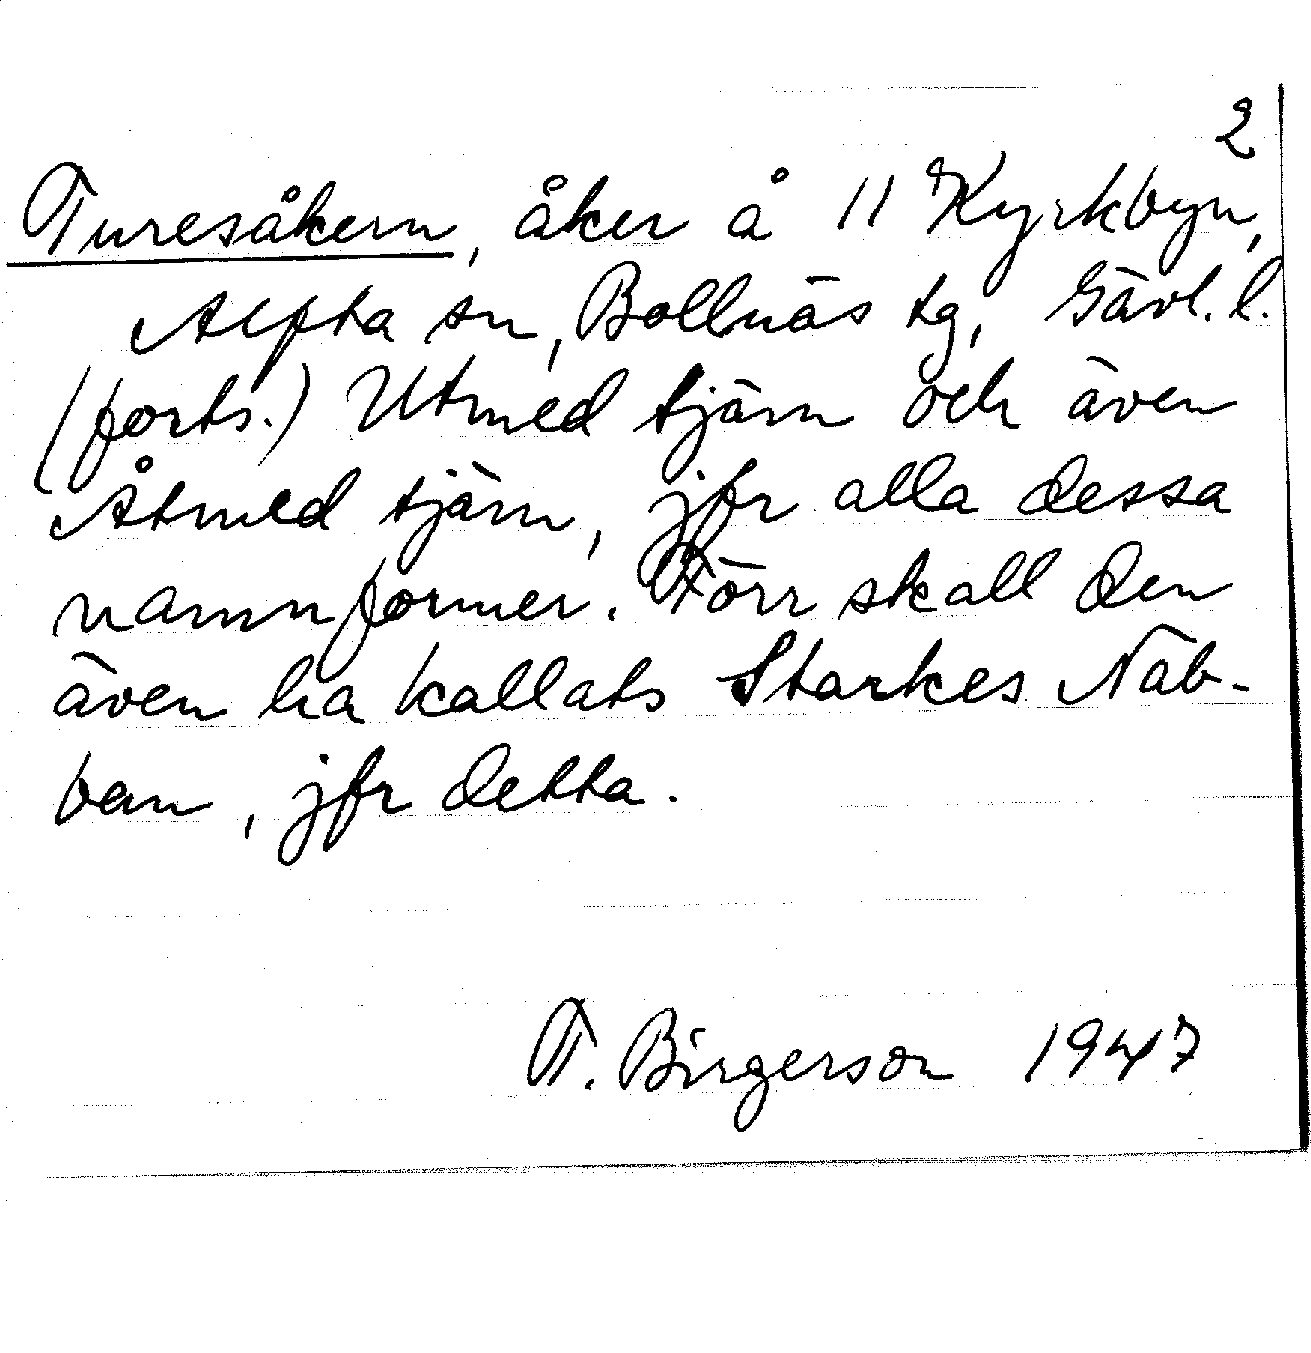 2
Turesåkern, åker å 11 Kyrkbyn,
Alfta sn, Bollnäs tg, Gävl. l.
(forts.) Utmed tjärn och även
Åtmed tjärn, jfr alla dessa
namnformer. Förr skall den
även ha kallats Starkes Näb-
ban, jfr detta.
T. Birgerson 1947